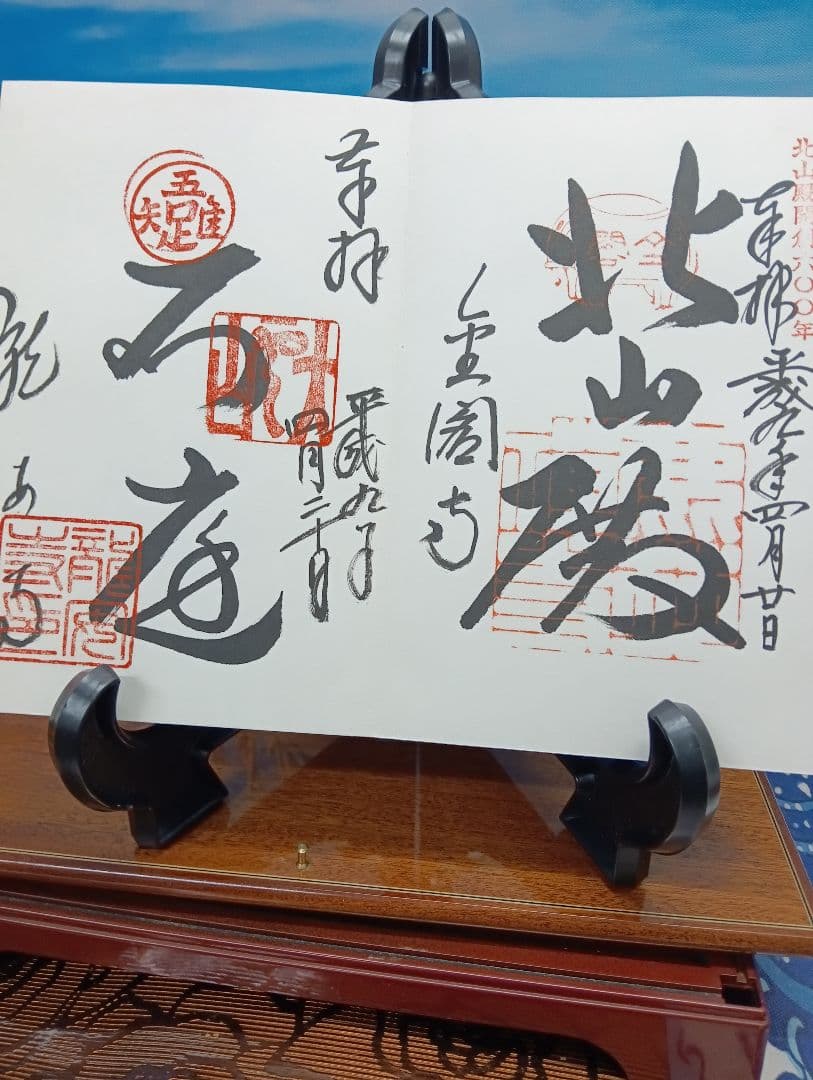 北山殿開創六〇〇年
奉拝 平成九年四月廿日
北山殿
金閣寺
奉拝
平成九年
四月二十日
吾唯足知
石庭
龍あ寺
龍安寺印